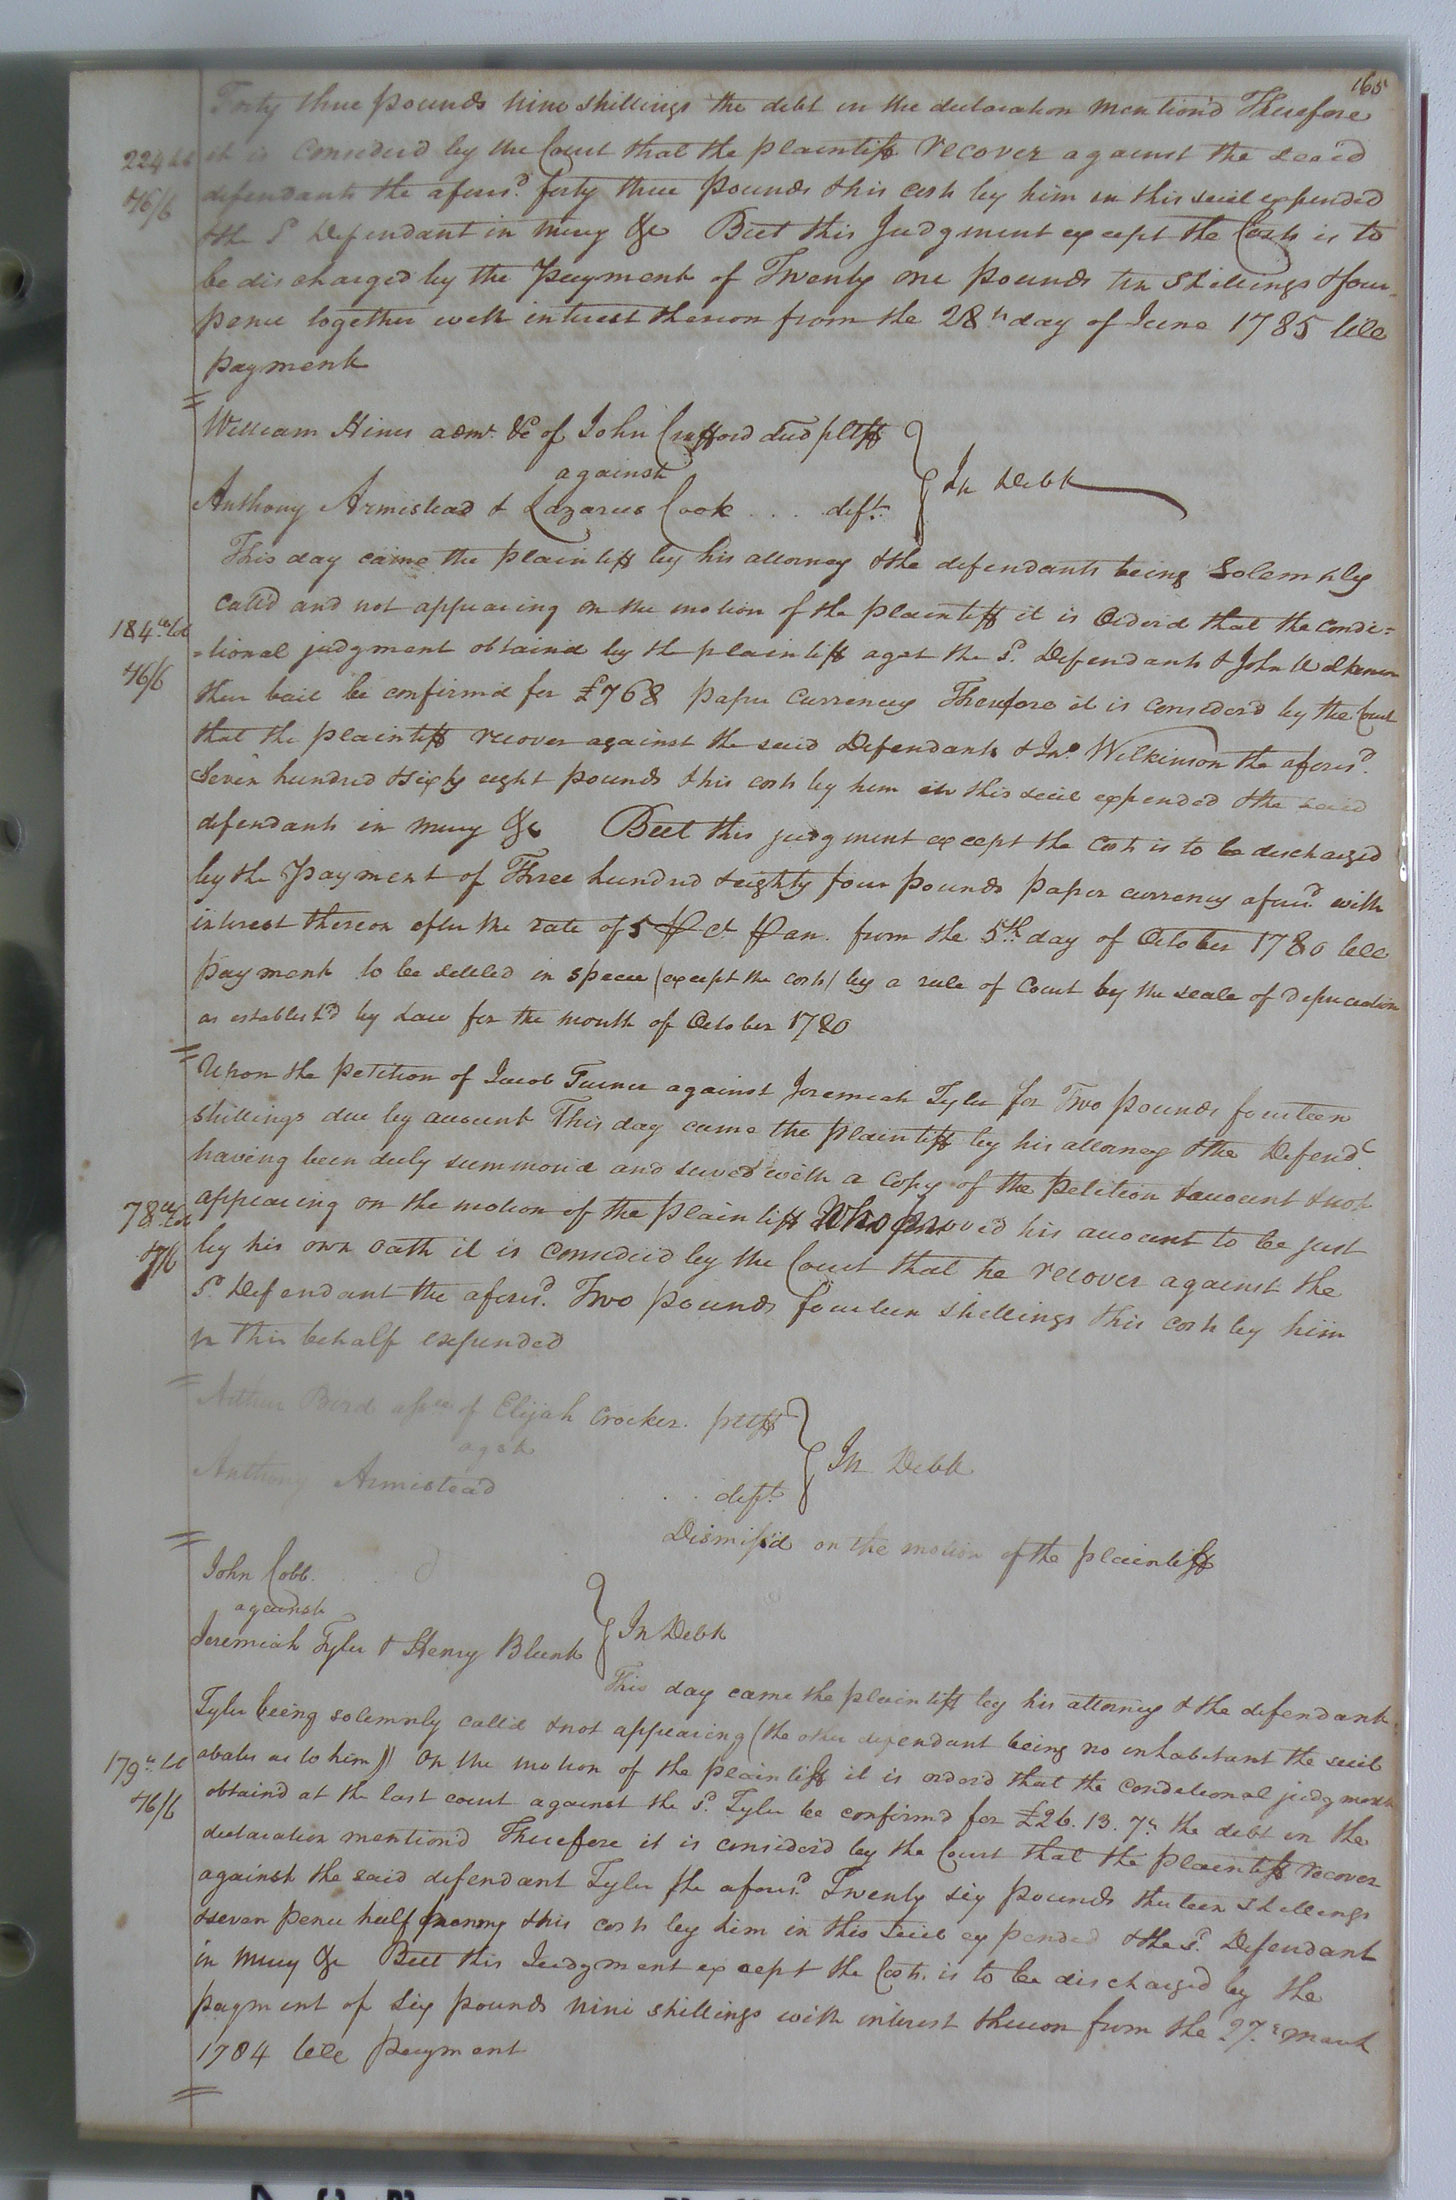 165
Forty three pounds nine shillings the debt in the declaration mention'd Therefore
it is Consider'd by the Court that the plaintiff recover against the said
224 lb
defendants the afores.d forty three pounds & his costs by him in this suit expended
& 6/6
& the s.d Defendant in mercy &c But this Judgment except the Costs is to
be discharged by the Payment of Twenty one pounds ten Shillings & four
pence together with interest thereon from the 28th day of June 1785 till
payment
William Hines adm.r &c of John Crafford dec'd pltff
against
Anthony Armistead & Lazarus Cook ... deft.s
In Debt
This day came the plaintiff by his attorney & the defendants being Solemnly
call'd and not appearing on the motion of the plaintiff it is Order'd that the condi=
184 lb tob
=tional judgment obtain'd by the plaintiff agst the s.d Defendants & John Wilkinson
& 6/6
their bail be confirm'd for £768 paper Currency Therefore it is consider'd by the Court
that the plaintiff recover against the said Defendants & Jn.o Wilkinson the afores.d
Seven hundred & sixty eight pounds & his costs by him in this suit expended & the said
defendants in mercy &c But this judgment except the costs is to be discharged
by the Payment of Three hundred & eighty four pounds paper currency afores.d with
interest thereon after the rate of 5 P Ct. P an. from the 5th day of October 1780 till
payment to be settled in specie (except the costs) by a rule of Court by the scale of depreciation
as establish'd by Law for the month of October 1780
Upon the petition of Jacob Turner against Jeremiah Tyler for Two pounds fourteen
shillings due by account This day came the plaintiff by his attorney & the Defend.t
having been duly summon'd and served with a Copy of the petition & account & not
appearing on the motion of the plaintiff Who proved his account to be just
78 lb tob
by his own oath it is consider'd by the Court that he recover against the
& 7/6
s.d Defendant the afores.d Two pounds fourteen shillings & his costs by him
in this behalf expended
Arthur Bird assee of Elijah Crocker. pltff
agst
Anthony Armistead ... deft.
In Debt
Dismiss'd on the motion of the plaintiff
John Cobb
against
Jeremiah Tyler & Henry Blunt
In Debt
This day came the plaintiff by his attorney & the defendant
Tyler being solemnly call'd & not appearing (the other defendant being no inhabitant the suit
abates as to him) On the motion of the plaintiff it is order'd that the conditional judgment
179 lb
obtain'd at the last court against the s.d Tyler be confirm'd for £26.13.7½ the debt in the
& 6/6
declaration mention'd Therefore it is consider'd by the Court that the plaintiff recover
against the said defendant Tyler the afores.d Twenty six pounds thirteen shillings
& seven pence half penny & his costs by him in this suit expended & the s.d Defendant
in mercy &c But this Judgment except the Costs is to be discharged by the
payment of six pounds nine shillings with interest thereon from the 27th march
1784 till payment